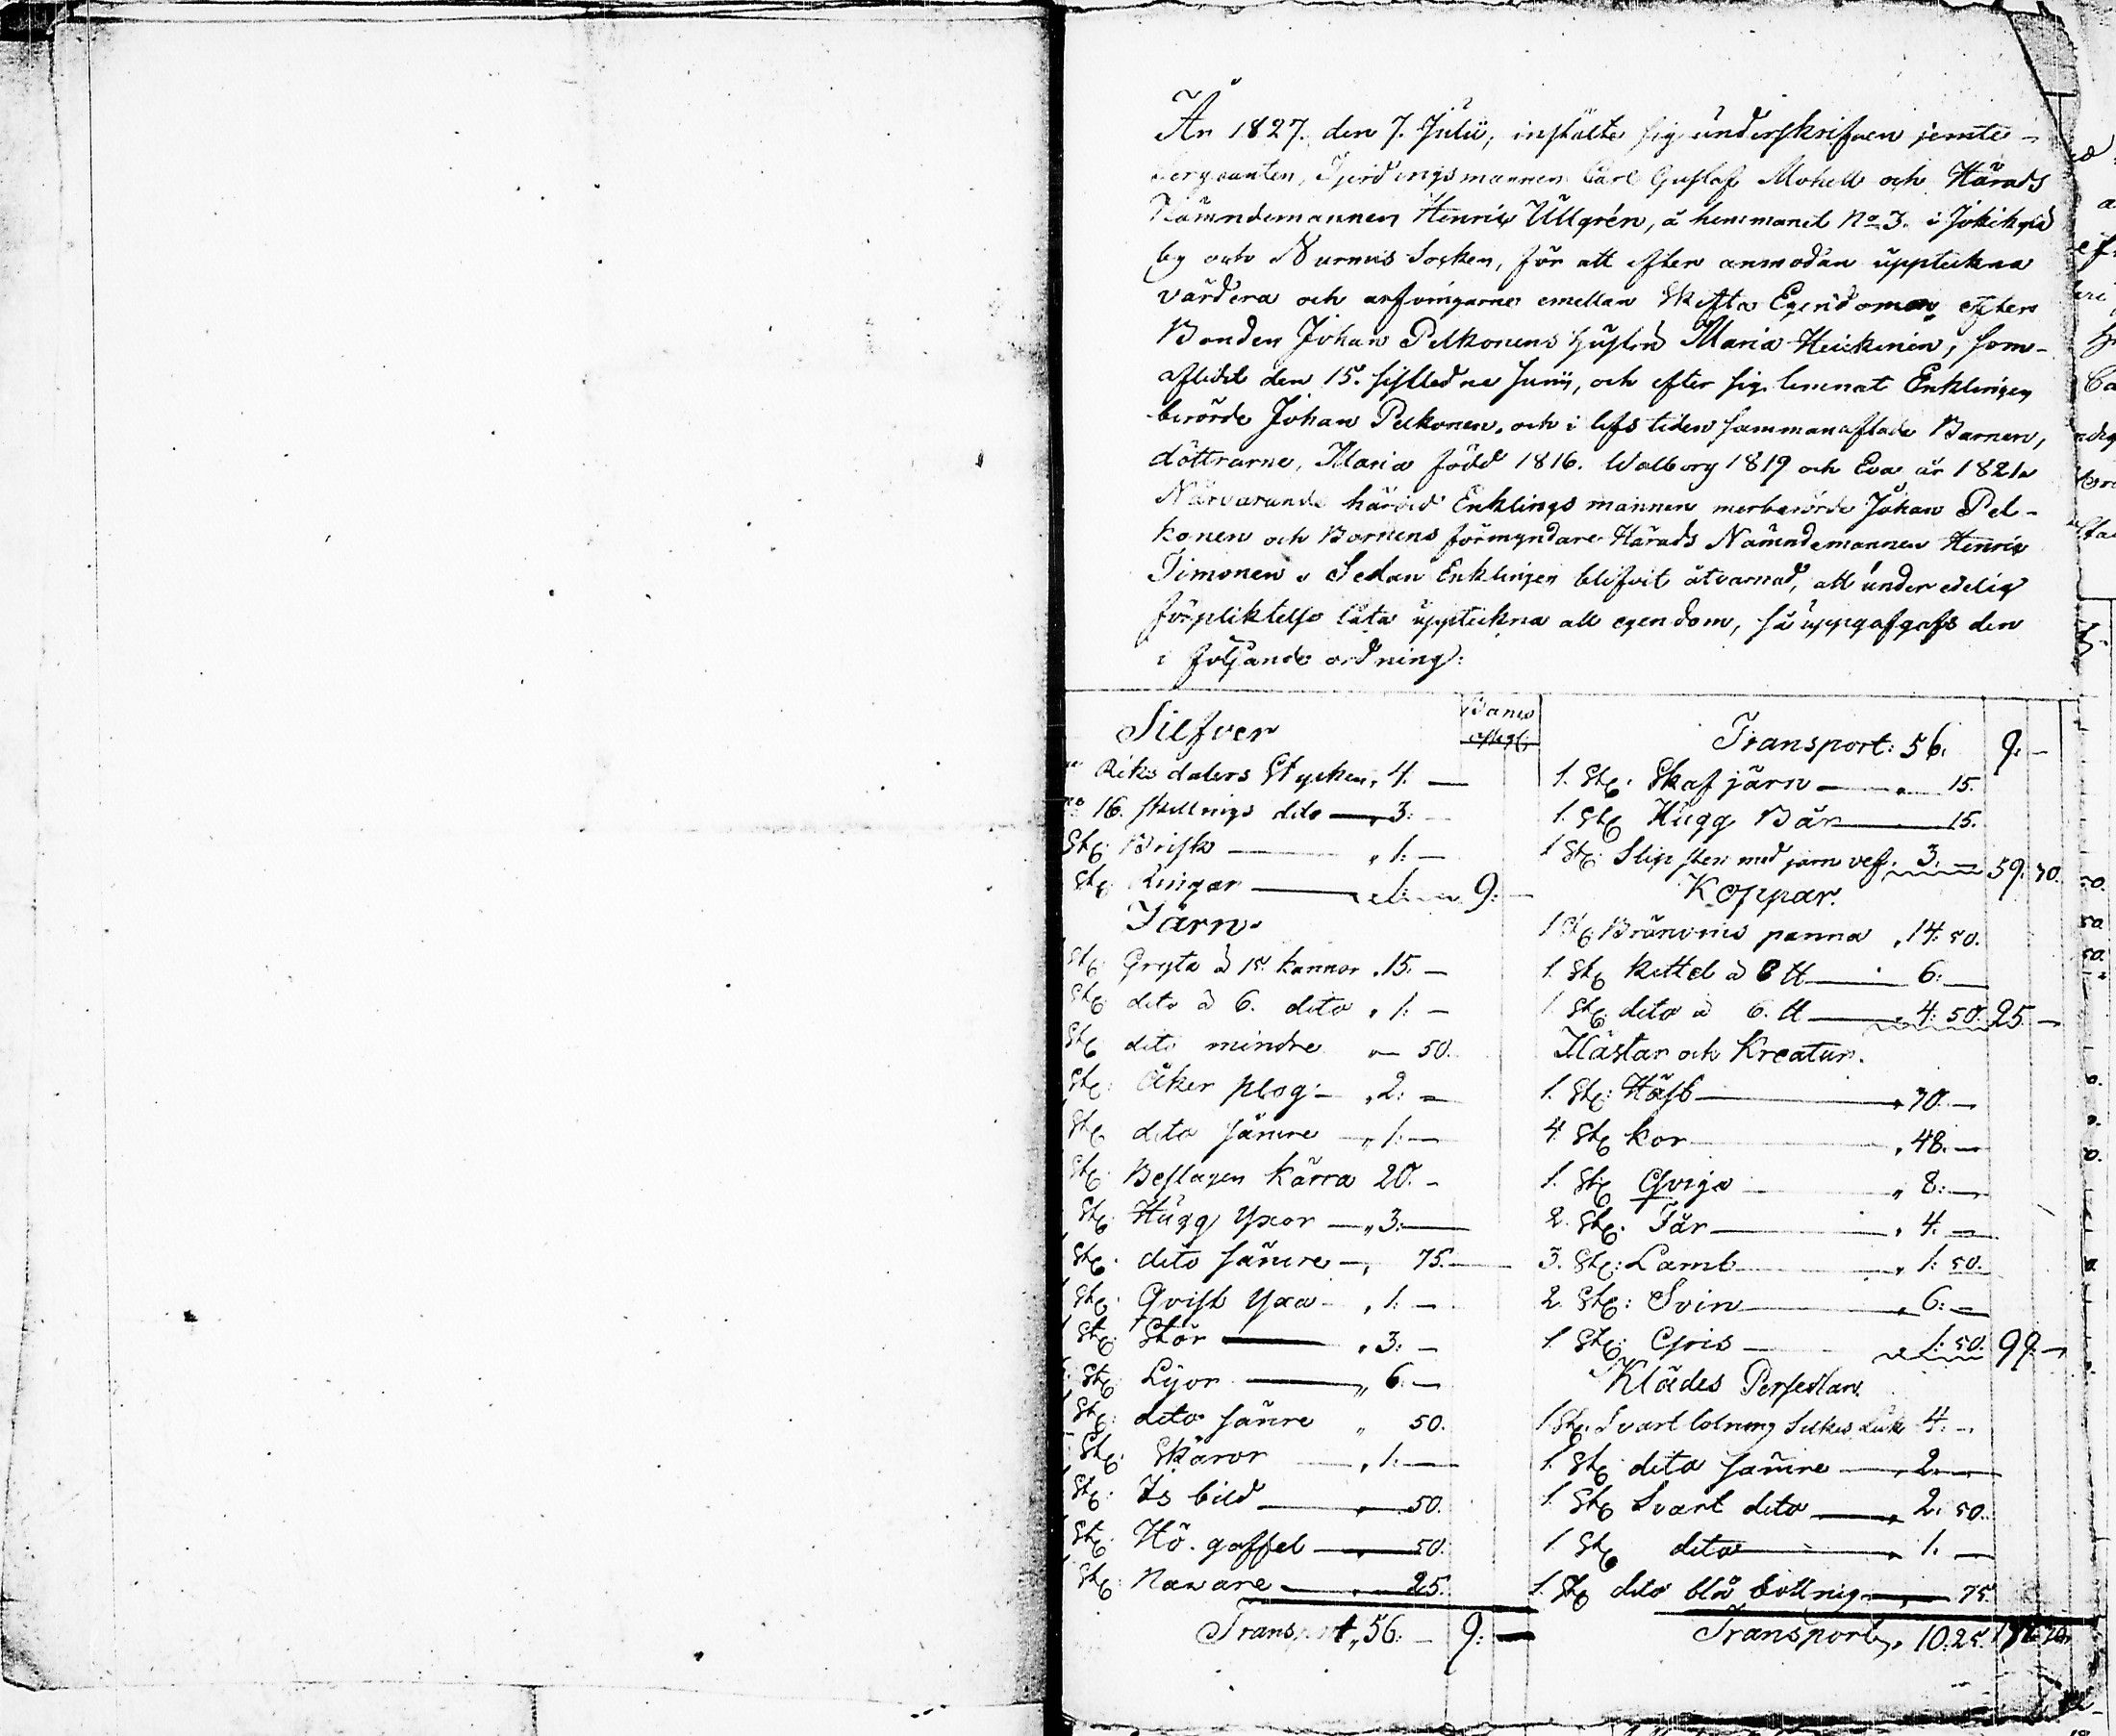 År 1827. den 7. Julii, instälte sig underskrifven jemte
Sergeanten, Fjerdingsmannen Carl Gustaf Mohell och Härads
Nämndemannen Henric Ullgrén, å hemmanet No 3. i Jokikylä
by och Nurmis Socken, för att efter anmodan uppteckna
värdera och arfvingarne emellan Skifta Egendomen efter
Bonden Johan Pelkonens hustru Maria Heickinin, som
aflidit den 15. sistledne Junii, och efter sig lemnat Enklingen
berörde Johan Pelkonen, och i lifstiden sammanaflade Barnen,
döttrarne, Maria född 1816. Walborg 1819 och Eva år 1821.
Närvarande härvid Enklings mannen merberörde Johan Pel-
konen och Barnens förmyndare Härads Nämndemannen Henric
Timonen. Sedan Enklingen blifvit åtvarnad, att under edelig
förpliktelse låta uppteckna all egendom, så uppgafs den
i följande ordning:
Banco
Silfver
Riksdalers Stycken, 4. —
16. skillings dito — 3. —
Stk: Brisk — 1: —
Stk: Ringar — 1: — 9: —
Järn.
Stk: Gryta à 15. kannor . 15. —
Stk: dito à 6. dito „ 1: —
Stk: dito mindre „ — 50.
Stk: Åker plog — „ 2: —
Stk: dito sämre — „ 1: —
Stk: Beslagen Kärra 20. —
Stk: Hugg Yxor — „ 3: —
Stk: dito sämre — „ 75. —
Stk: Qvist Yxa — „ 1: —
Stk: Stör — „ 3: —
Stk: Lijor — „ 6: —
Stk: dito sämre „ 50.
Stk: Skäror — „ 1: —
Stk: Is bild — „ 50.
Stk: Hö. gaffel — „ 50.
Stk: Navare — „ 25.
Transport „ 56: — 9: —
Transport: 56. 9: —
1. Stk: Skafjärn — „ 15.
1. Stk: Hugg Bår — 15.
1 Stk: Slipsten med järn vef. 3. — 59: 30.
Koppar.
1 Stk: Bränvins panna „ 14: 50.
1. Stk: Kittel à 8 ℔ — 6: —
1. Stk: dito à 6. ℔ — 4: 50. 25. —
Hästar och Kreatur.
1. Stk: Häst — „ 30. —
4. Stk: Kor — „ 48. —
1. Stk: Qviga — „ 8: —
2. Stk: Får — „ 4. —
3. Stk: Lamb — „ 1: 50.
2. Stk: Svin — „ 6: —
1. Stk: Gris — 1: 50. 99. —
Klädes Persedlar.
1 Stk: Svart botning Silkes duk 4. —
1. Stk: dito sämre — 2. —
1. Stk: Svart dito — „ 2: 50.
1. Stk: dito — „ 1. —
1. Stk: dito blå bottnig — „ 75.
Transport, „ 10.25.